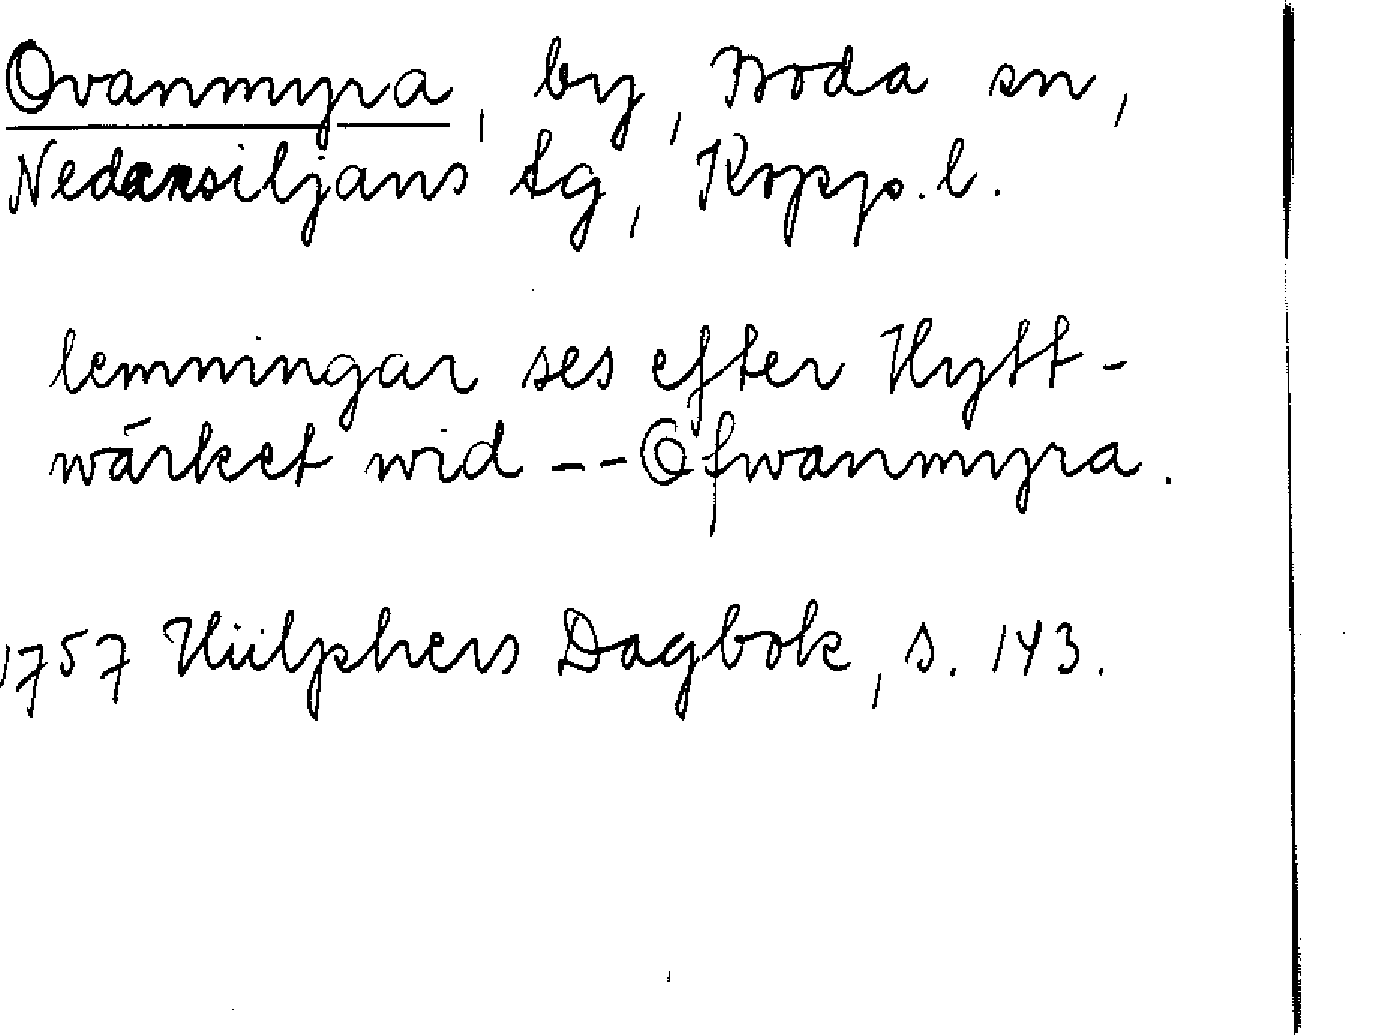 Ovanmyra, by, Boda sn,
Nedansiljans tg, Kopp. l.
lemningar ses efter Hytt-
wärket wid -- Ofwanmyra.
1757 Hülphers Dagbok, s. 143.